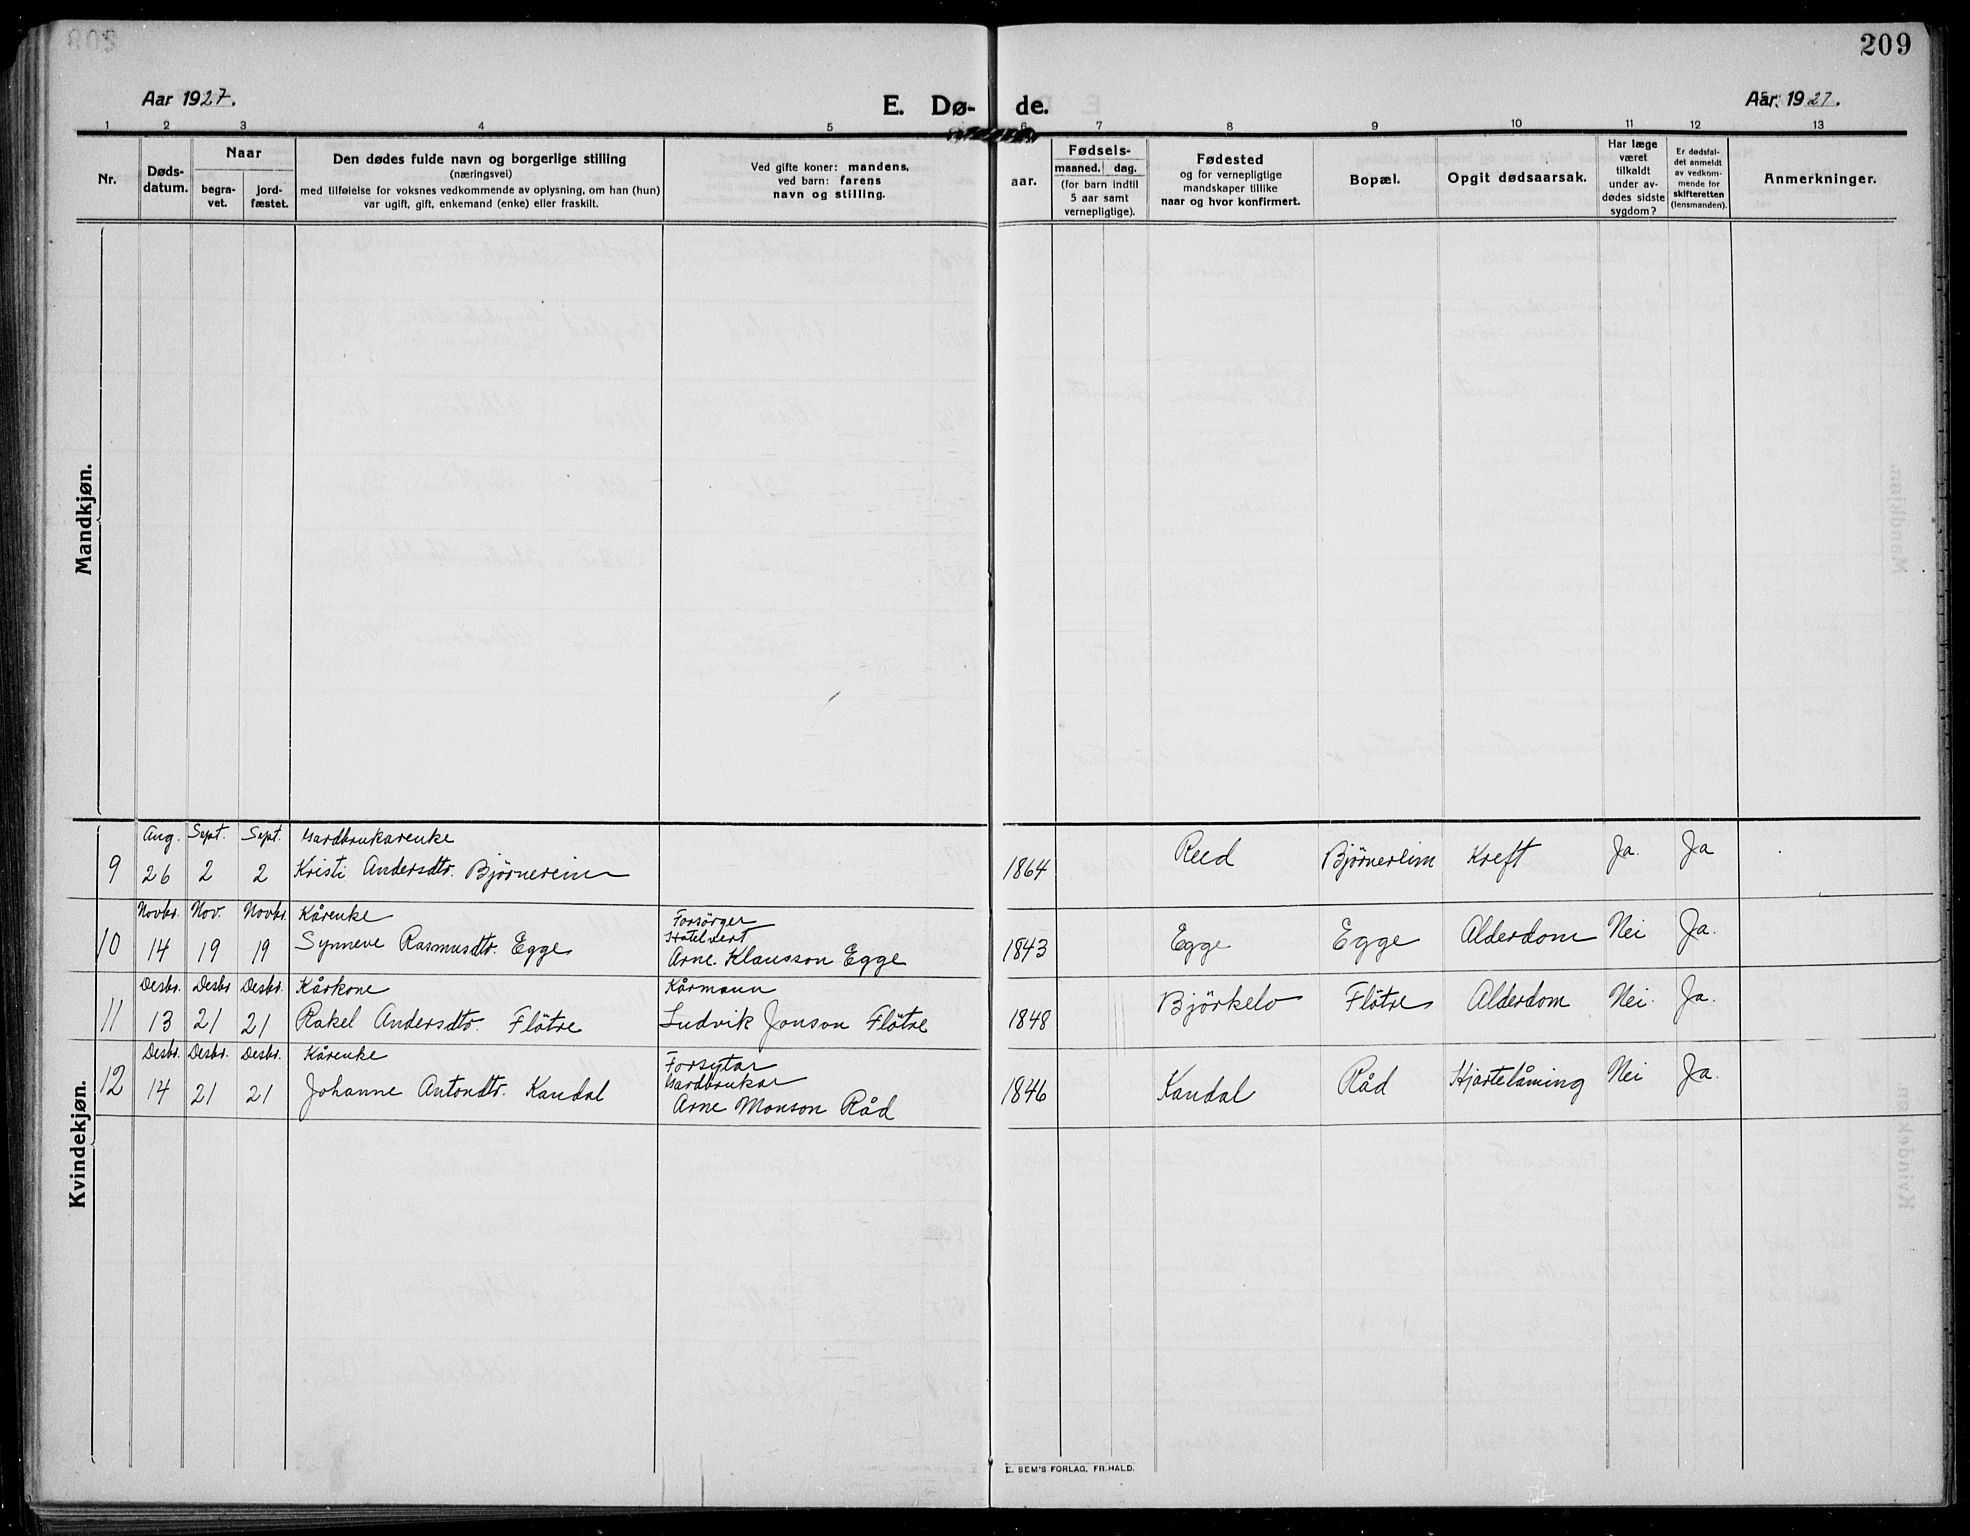 209
Aar 1927.
E. Dø- de.
Aar 1927.
1 2 3 4 5 6 7 8 9 10 11 12 13
Nr.
Døds-
datum.
Naar
begra-
vet.
jord-
fæstet.
Den dødes fulde navn og borgerlige stilling
(næringsvei)
med tilføielse for voksnes vedkommende av oplysning, om han (hun)
var ugift, gift, enkemand (enke) eller fraskilt.
Ved gifte koner: mandens,
ved barn: farens
navn og stilling.
aar.
Fødsels-
maaned. dag.
(for barn indtil
5 aar samt
vernepligtige).
Fødested
og for vernepligtige
mandskaper tillike
naar og hvor konfirmert.
Bopæl.
Opgit dødsaarsak.
Har læge
været
tilkaldt
under av-
dødes sidste
sygdom?
Er dødsfal-
det anmeldt
av vedkom-
mende for
skifteretten
(lensmanden).
Anmerkninger.
Mandkjøn.
Kvindekjøn.
Aug. Sept. Sept. Gardbrukarenke
9 26 2 2 Kristi Andersdtr. Bjørnereim 1864 Reed Bjørnereim Kreft Ja. Ja
Novbr. Nov. Novbr. Kårenke Forsörger
Hotelvert
10 14 19 19 Synneve Rasmusdtr. Egge Arne Klausson Egge 1843 Egge Egge Alderdom Nei Ja.
Desbr. Desbr Desbr. Kårkone Kårmann
11 13 21 21 Rakel Andersdtr. Flötre Ludvik Jonson Flötre 1848 Björkelo Flötre Alderdom Nei. Ja.
Desbr. Desbr. Desbr. Kårenke Forsytar
Gardbrukar
12 14 21 21 Johanne Antondtr. Kandal Arne Monson Råd 1846 Kandal Råd Hjartelåming Nei Ja.
E. SEM'S FORLAG, FR.HALD.